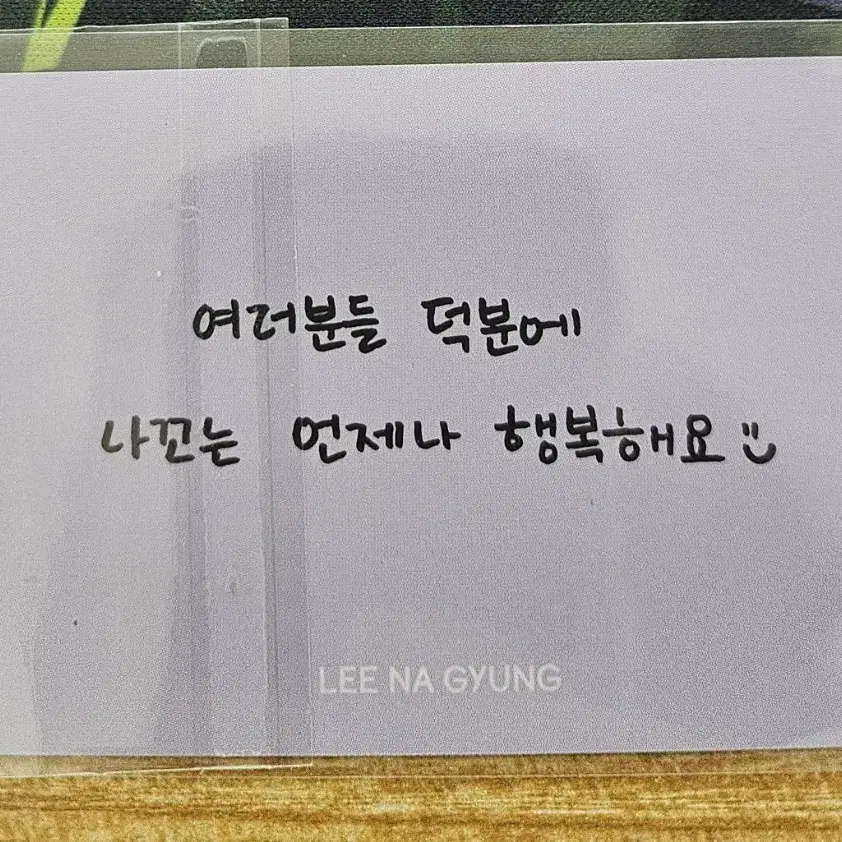 여러분들 덕분에
나꼬는 언제나 행복해요 :)
LEE NA GYUNG